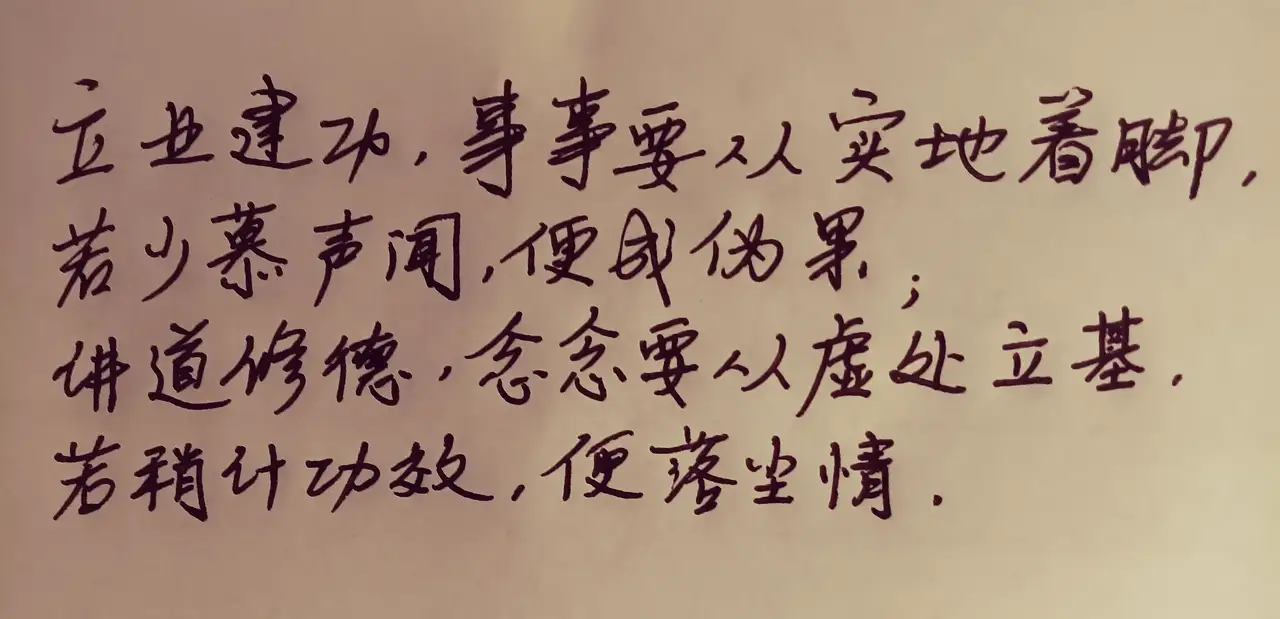 立业建功,事事要从实地着脚,
若少慕声闻,便成伪果;
讲道修德,念念要从虚处立基,
若稍计功效,便落尘情.